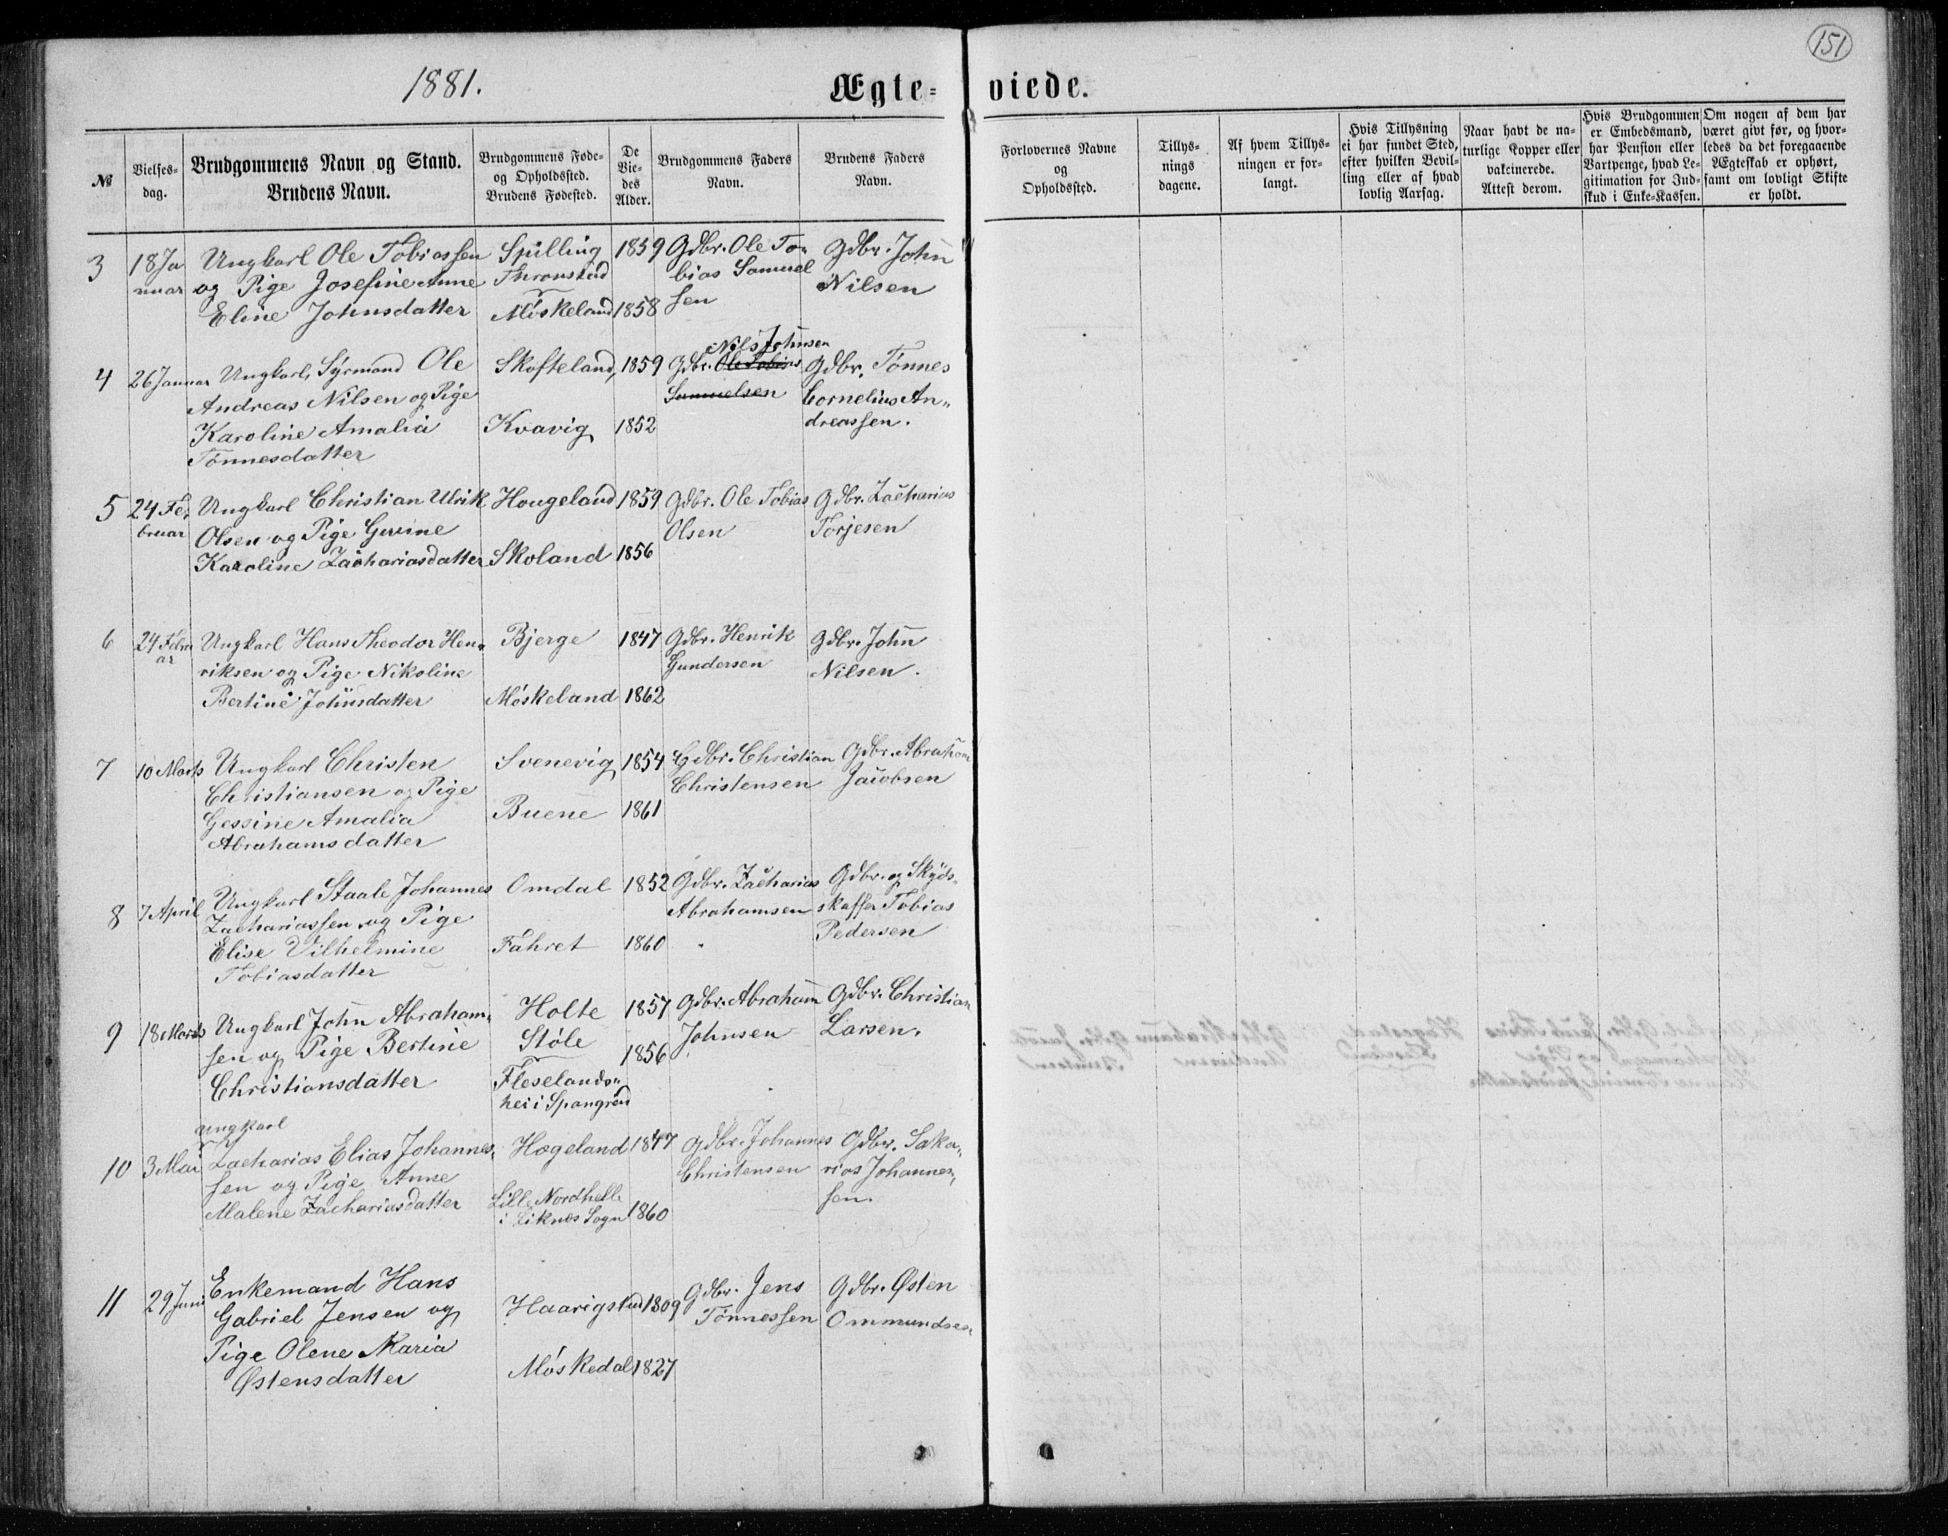 151
1881.
Ægte= viede.
№
Vielses-
dag.
Brudgommens Navn og Stand.
Brudens Navn.
Brudgommens Føde-
og Opholdssted.
Brudens Fødested.
De
Vie-
des
Alder.
Brudgommens Faders
Navn.
Brudens Faders
Navn.
Forlovernes Navne
og
Opholdssted.
Tillys-
nings
dagene.
Af hvem Tillys-
ningen er for-
langt.
Hvis Tillysning
ei har fundet Sted,
efter hvilken Bevil-
ling eller af hvad
lovlig Aarsag.
Naar havt de na-
turlige Kopper eller
vakcinerede.
Attest derom.
Hvis Brudgommen
er Embedsmand,
har Pension eller
Vartpenge, hvad Le-
gitimation for Ind-
skud i Enke-Kassen.
Om nogen af dem har
været givt før, og hvor-
ledes da det foregaaende
Ægteskab er ophørt,
samt om lovligt Skifte
er holdt.
3 18 Ja Ungkarl Ole Tobiassen Spilling 1859 Gdbr. Ole To- Gdbr. John
nuar og Pige Josefine Anne Thronstad bias Samuel Nilsen
Eline Johnsdatter Møskeland 1858 sen
Nils Johnsen
4 26 Januar Ungkarl, Syrmand Ole Skofteland, 1859 Gdbr. Ole Tobias Gdbr. Tønnes
Andreas Nilsen og Pige Samuelsen Cornelius An-
Karoline Amalia Kvavig 1852 dreassen.
Tønnesdatter
5 24 Fe- Ungkarl Christian Ulrik Hougeland 1859 Gdbr. Ole Tobias Gdbr. Zacharias
bruar Olsen og Pige Gurine Olsen Torjesen
Karoline Zachariasdatter Skoland 1856
6 24 Febru Ungkarl Hans Theodor Hen- Bjerge 1847 Gdbr. Henrik Gdbr. John
ar riksen og Pige Nikoline Gundersen Nilsen.
Bertine Johnsdatter Møskeland 1862
7 10 Marts Ungkarl Christen Svenevig 1854 Gdbr. Christian Gdbr. Abraham
Christiansen og Pige Christensen Jacobsen
Gessine Amalia Buene 1861
Abrahamsdatter
8 7 April Ungkarl Staale Johannes Omdal 1852 Gdbr. Zacharias Gdbr. og Skyds-
Zachariassen og Pige Abrahamsen skaffer Tobias
Elise Vilhelmine Fahret 1860 Pedersen
Tobiasdatter
9 18 Marts Ungkarl John Abraham- Holte 1857 Gdbr. Abraham Gdbr. Christian
sen og Pige Bertine Støle 1856 Johnsen Larsen.
Christiansdatter Fleselands-
hei i Spangreid
Ungkarl
10 3 Mai Zacharias Elias Johannes- Hægeland 1847 Gdbr. Johannes Gdbr. Saka-
sen og Pige Anne Christensen rias Johannes-
Malene Zachariasdatter Lille Nordhelle sen.
i Liknes Sogn 1860
11 29 Juni Enkemand Hans
Gabriel Jensen og Haarigstad 1809 Gdbr. Jens Gdbr. Østen
Pige Olene Maria Tønnessen Ommundsen
Østensdatter Møskedal 1827